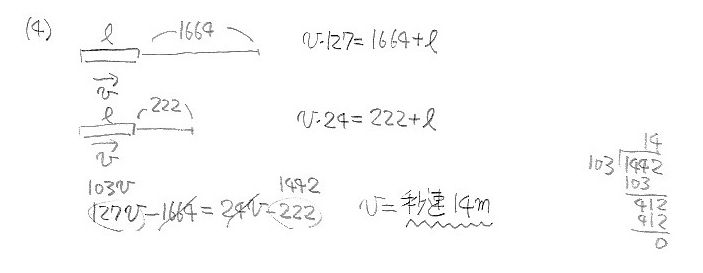 (4)
l 1664
v
v・127=1664+l
l 222
v
v・24=222+l
103v 1442
127v-1664=24v-222
v=秒速14m
14
103 1442
103
412
412
0